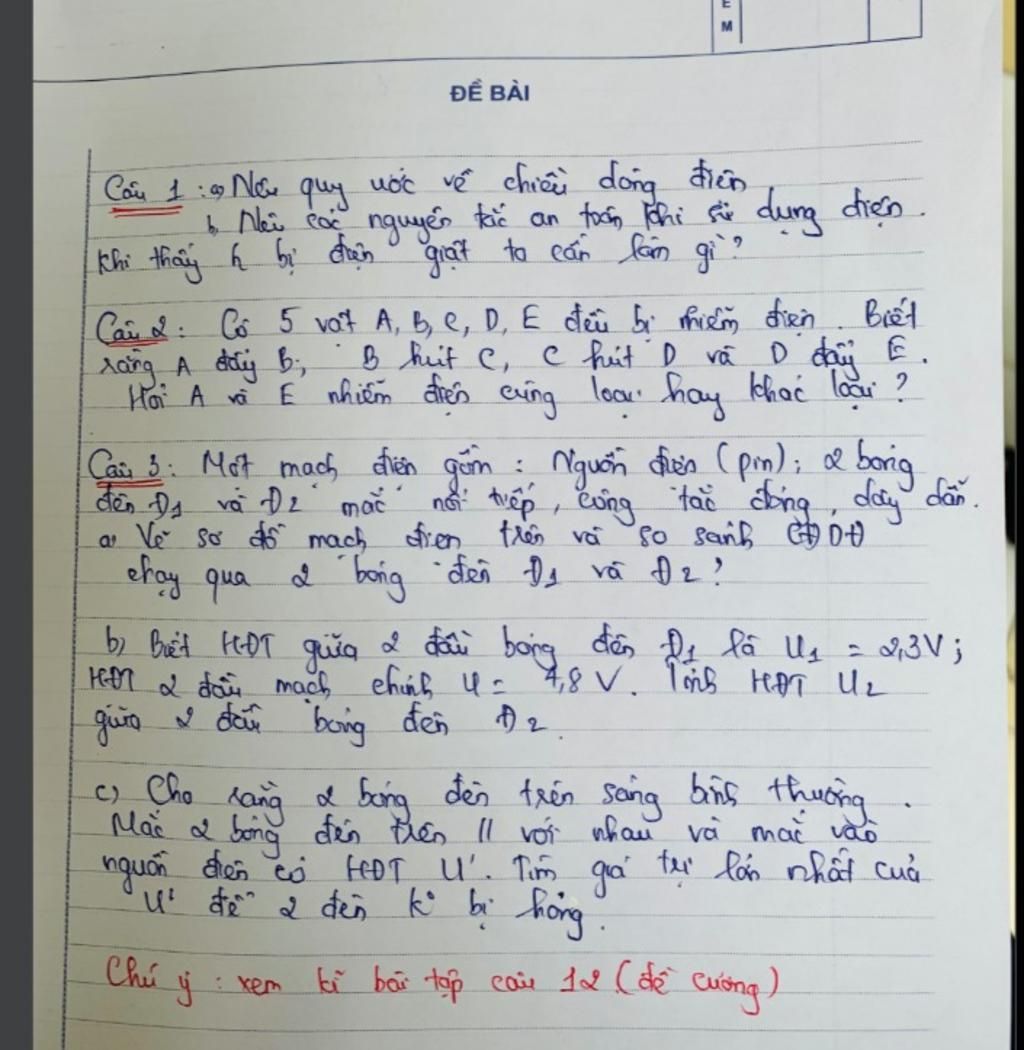 E
M
ĐỀ BÀI
Câu 1: a, Nêu quy ước về chiều dòng điện
b, Nêu các nguyên tắc an toàn khi sử dụng điện.
Khi thấy h bị điện giật ta cần làm gì?
Câu 2: Có 5 vật A, B, C, D, E đều bị nhiễm điện. Biết
rằng A đẩy B; B hút C, C hút D và D đẩy E.
Hỏi A và E nhiễm điện cùng loại hay khác loại?
Câu 3: Một mạch điện gồm: Nguồn điện (pin); 2 bóng
đèn Đ1 và Đ2 mắc nối tiếp, công tắc đóng, dây dẫn.
a, Vẽ sơ đồ mạch điện trên và so sánh CĐDĐ
chạy qua 2 bóng đèn Đ1 và Đ2?
b) Biết HĐT giữa 2 đầu bóng đèn Đ1 là U1 = 2,3V;
HĐT 2 đầu mạch chính U = 4,8 V. Tính HĐT U2
giữa 2 đầu bóng đèn Đ2.
c) Cho rằng 2 bóng đèn trên sáng bình thường.
Mắc 2 bóng đèn trên // với nhau và mắc vào
nguồn điện có HĐT U'. Tìm giá trị lớn nhất của
U' để 2 đèn k° bị hỏng.
Chú ý: xem kĩ bài tập câu 12 (đề cương)